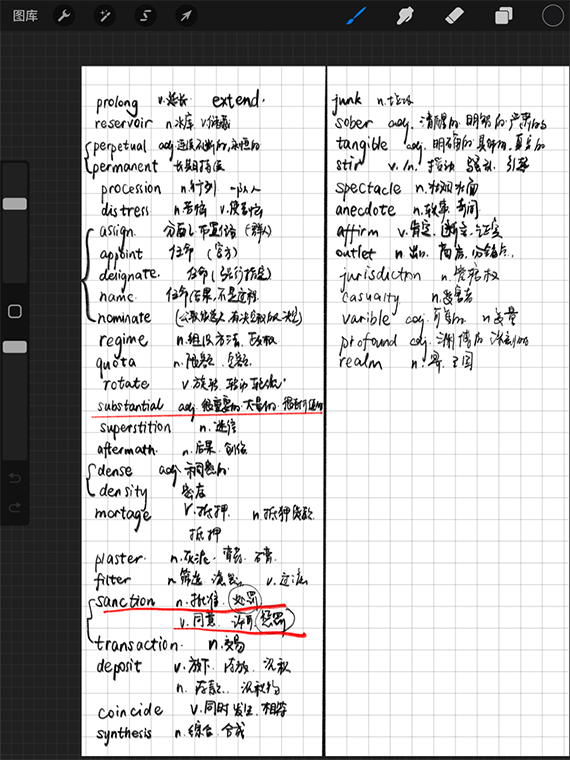 图库
prolong v.延长 extend.
reservoir n.水库 v.储藏
perpetual adj.连续不断的,永恒的
permanent 长期持续
procession n.行列 一队人
distress n.苦恼 v.使苦恼
assign. 分配, 布置任务 (群人)
appoint 任命 (官方)
delignate. 任命
name. 任命(结果,不是过程
nominate
regime n.组织方法, 政权
quota n.限额, 定额.
rotate v.旋转,
substantial adj.很重要的.大量的.
superstition n.迷信
aftermath. n.后果. 创伤
dense adj.稠密的.
density 密度
mortage v.抵押. n.抵押贷款.
抵押
plaster. n.灰泥. 膏药. 石膏.
filter n.筛选 v.过滤
sanction n.批准. 处罚
v.同意. 许可 惩罚
transaction. n.交易
deposit v.放下. 存放. 沉积
n.存款. 沉积物
coincide v.同时发生.相符
synthesis n.综合.合成
junk n.垃圾
sober adj.清醒的.明智的.严肃的
tangible adj.明确的.具体的.真实的
stir v./n. 搅动 骚乱. 引起
spectacle n.壮观场面
anecdote n.轶事.奇闻
affirm v.肯定.断定.证实
outlet n.出口. 商店.
jurisdiction n.管辖权
casualty n.受害者
varible adj.可变的. n.变量
profound adj.渊博的 深刻的
realm n.界. 王国